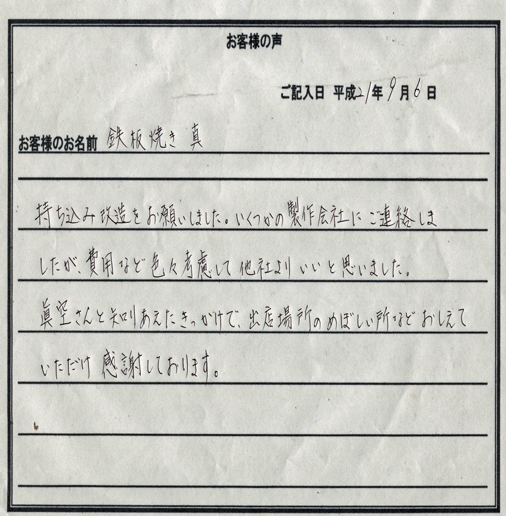 お客様の声
ご記入日 平成21年9月6日
お客様のお名前 鉄板焼き 真
持ち込み改造をお願いしました。いくつかの製作会社にご連絡しま
したが、費用など色々考慮して他社よりいいと思いました。
真空さんと知りあえたきっかけで、出店場所のめぼしい所などおしえて
いただけ感謝しております。